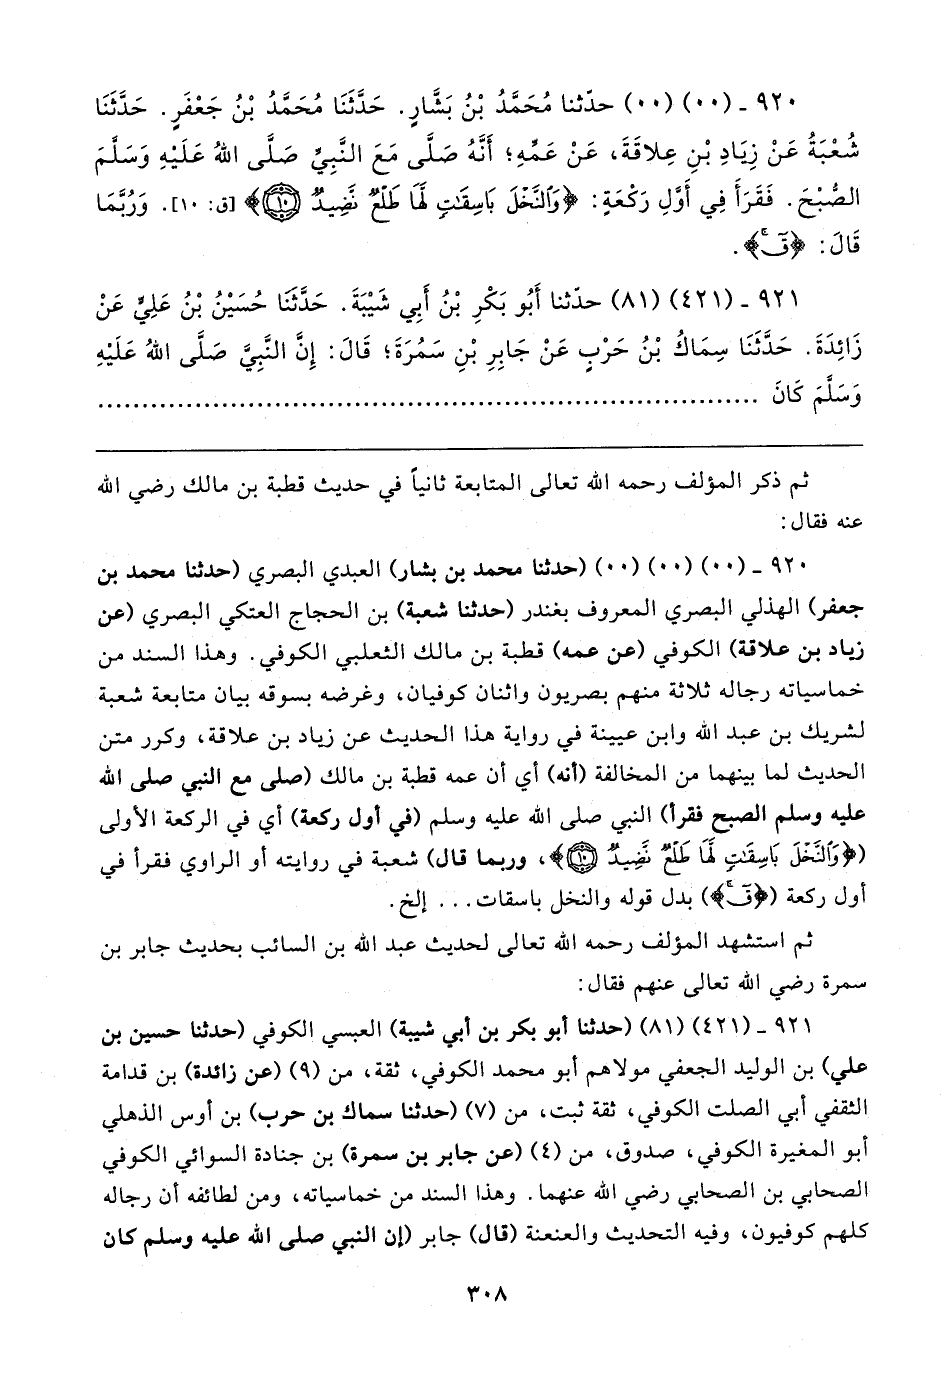 ٩٢٠ ـ (٠٠) (٠٠) حدّثنا مُحَمَّدُ بْنُ بَشَّارٍ. حَدَّثَنَا مُحَمَّدُ بْنُ جَعْفَرٍ. حَدَّثَنَا
شُعْبَةُ عَنْ زِيَادِ بْنِ عِلاقَةَ، عَنْ عَمِّهِ؛ أَنَّهُ صَلَّى مَعَ النَّبِيِّ صَلَّى اللهُ عَلَيْهِ وَسَلَّمَ
الصُّبْحَ. فَقَرَأَ فِي أَوَّلِ رَكْعَةٍ: ﴿وَٱلنَّخْلَ بَاسِقَٰتٍ لَّهَا طَلْعٌ نَّضِيدٌ ۝١٠﴾ [ق: ١٠]. وَرُبَّمَا
قَالَ: ﴿قٓۚ﴾.
٩٢١ ـ (٤٢١) (٨١) حدّثنا أَبُو بَكْرِ بْنُ أَبِي شَيْبَةَ. حَدَّثَنَا حُسَيْنُ بْنُ عَلِيٍّ عَنْ
زَائِدَةَ. حَدَّثَنَا سِمَاكُ بْنُ حَرْبٍ عَنْ جَابِرِ بْنِ سَمُرَةَ؛ قَالَ: إِنَّ النَّبِيَّ صَلَّى اللهُ عَلَيْهِ
وَسَلَّمَ كَانَ ........................................................................
ثم ذكر المؤلف رحمه الله تعالى المتابعة ثانياً في حديث قطبة بن مالك رضي الله
عنه فقال:
٩٢٠ ـ (٠٠) (٠٠) (٠٠) (حدثنا محمد بن بشار) العبدي البصري (حدثنا محمد بن
جعفر) الهذلي البصري المعروف بغندر (حدثنا شعبة) بن الحجاج العتكي البصري (عن
زياد بن علاقة) الكوفي (عن عمه) قطبة بن مالك الثعلبي الكوفي. وهذا السند من
خماسياته رجاله ثلاثة منهم بصريون واثنان كوفيان، وغرضه بسوقه بيان متابعة شعبة
لشريك بن عبد الله وابن عيينة في رواية هذا الحديث عن زياد بن علاقة، وكرر متن
الحديث لما بينهما من المخالفة (أنه) أي أن عمه قطبة بن مالك (صلى مع النبي صلى الله
عليه وسلم الصبح فقرأ) النبي صلى الله عليه وسلم (في أول ركعة) أي في الركعة الأولى
(﴿وَٱلنَّخْلَ بَاسِقَٰتٍ لَّهَا طَلْعٌ نَّضِيدٌ ۝١٠﴾، وربما قال) شعبة في روايته أو الراوي فقرأ في
أول ركعة (﴿قٓۚ﴾) بدل قوله والنخل باسقات... إلخ.
ثم استشهد المؤلف رحمه الله تعالى لحديث عبد الله بن السائب بحديث جابر بن
سمرة رضي الله تعالى عنهم فقال:
٩٢١ ـ (٤٢١) (٨١) (حدثنا أبو بكر بن أبي شيبة) العبسي الكوفي (حدثنا حسين بن
علي) بن الوليد الجعفي مولاهم أبو محمد الكوفي، ثقة، من (٩) (عن زائدة) بن قدامة
الثقفي أبي الصلت الكوفي، ثقة ثبت، من (٧) (حدثنا سماك بن حرب) بن أوس الذهلي
أبو المغيرة الكوفي، صدوق، من (٤) (عن جابر بن سمرة) بن جنادة السوائي الكوفي
الصحابي بن الصحابي رضي الله عنهما. وهذا السند من خماسياته، ومن لطائفه أن رجاله
كلهم كوفيون، وفيه التحديث والعنعنة (قال) جابر (إن النبي صلى الله عليه وسلم كان
٣٠٨